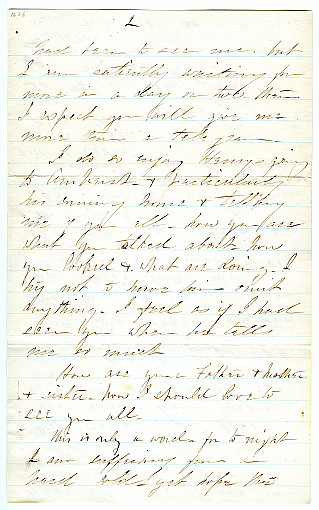 2
had been to see me. but
I am patiently waiting for
more in a day or two then
I expect you will give me
more than a telegram.
I do so enjoy Henrys going
to Amherst & particularly
his coming home & telling
me of you all - how you are
what you talked about - how
you looked & what are doing. I
try not to have him omit
anything. I feel as if I had
seen you when he tells
me so much
How are your Father & Mother
& sister - how I should love to
see you all.
This is only a word - for to night
I am suffering from a
hard cold - yet hope the